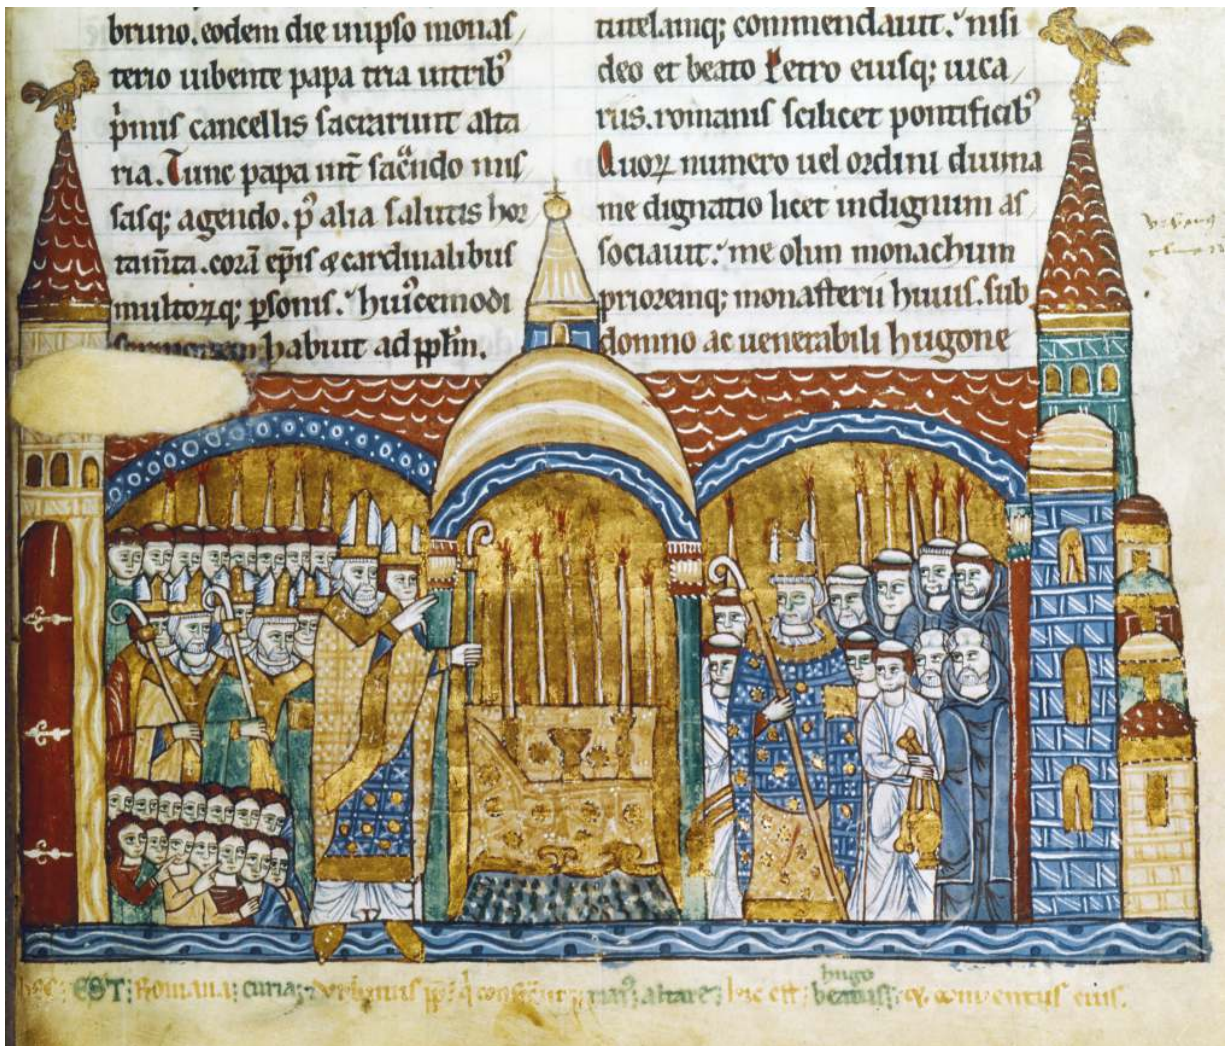 bruno. eodem die in ipso monas
terio iubente papa tria in tribꝰ
pͥmis cancellis sacrarunt alta
ria. Tunc papa int̄ sac̄ͣndo mis
sasq; agendo. p̄ꝰ alia salutis hor
tam̄ta. corā ep̄is & cardinalibus
multoꝝq; ꝑsonis. huiꝰcemodi
habuit ad pp̄lm̄.
tutelamq; commendauit. nisi
deo et beato Petro eiusq; uica
riis. romanis scilicet pontificibꝰ
Quoꝝ numero uel ordini diuina
me dignatio licet indignum as
sociauit. me olim monachum
prioremq; monasterii huius. sub
domno ac uenerabili hugone
EST: Romana: curia; altare; hic est: hugo & conventus eius.